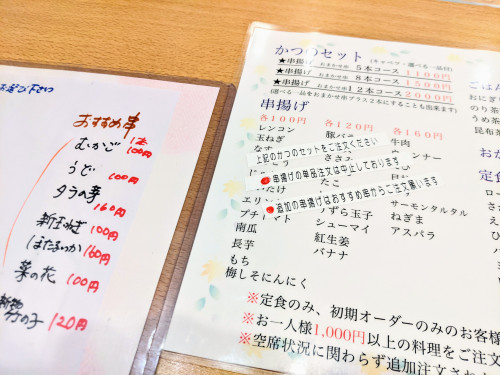 お選び下さい
おすすめ串
1本
むかご 100円
うど 100円
タラの芽 160円
新玉ねぎ 100円
ほたるいか 160円
菜の花 100円
竹の子 120円
かつのセット (キャベツ・選べる一品付)
★串揚げ おまかせ串 5本コース 1100円
★串揚げ おまかせ串 8本コース 1500円
★串揚げ おまかせ串 12本コース 2000円
(選べる一品をおまかせ串プラス2本にすることも出来ます)
串揚げ
各100円 各120円 各160円
レンコン 豚バ 牛肉
玉ねぎ
上記のかつのセットをご注文ください
ンナー
●串揚げの単品注文は中止しております
たこ
●追加の串揚げはおすすめ串からご注文願います
エリン
サーモンタルタル
プチトマト うずら玉子 ねぎま
南瓜 シューマイ アスパラ
長芋 紅生姜
もち バナナ
梅しそにんにく
※定食のみ、初期オーダーのみのお客様
※お一人様1,000円以上の料理をご注文
※空席状況に関わらず追加注文され
ごはん
おにぎり
のり茶
うめ茶
昆布
おか
定食